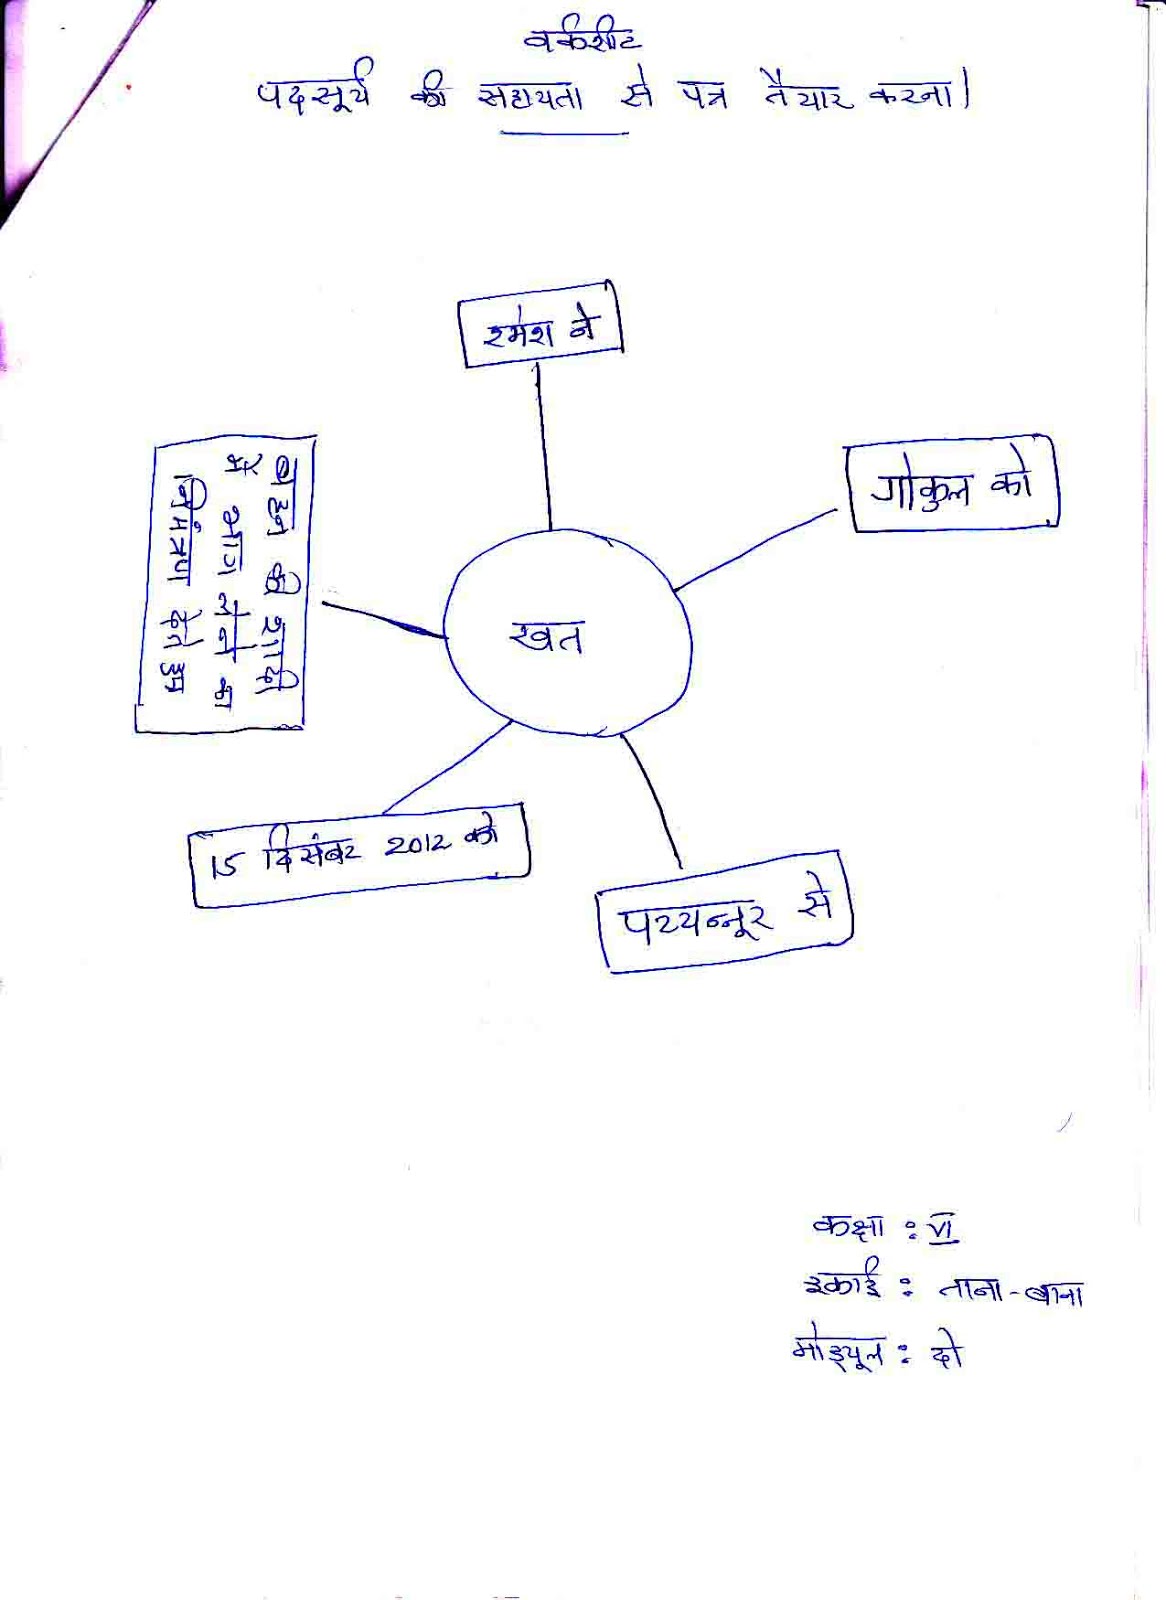 वर्कशीट
पदसूर्य की सहायता से पत्र तैयार करना।
रमेश ने
गोकुल को
बहन की शादी
में भाग लेने का
निमंत्रण देते हुए
खत
15 दिसंबर 2012 को
पय्यन्नूर से
कक्षा : VI
इकाई : ताना-बाना
मोड्यूल : दो